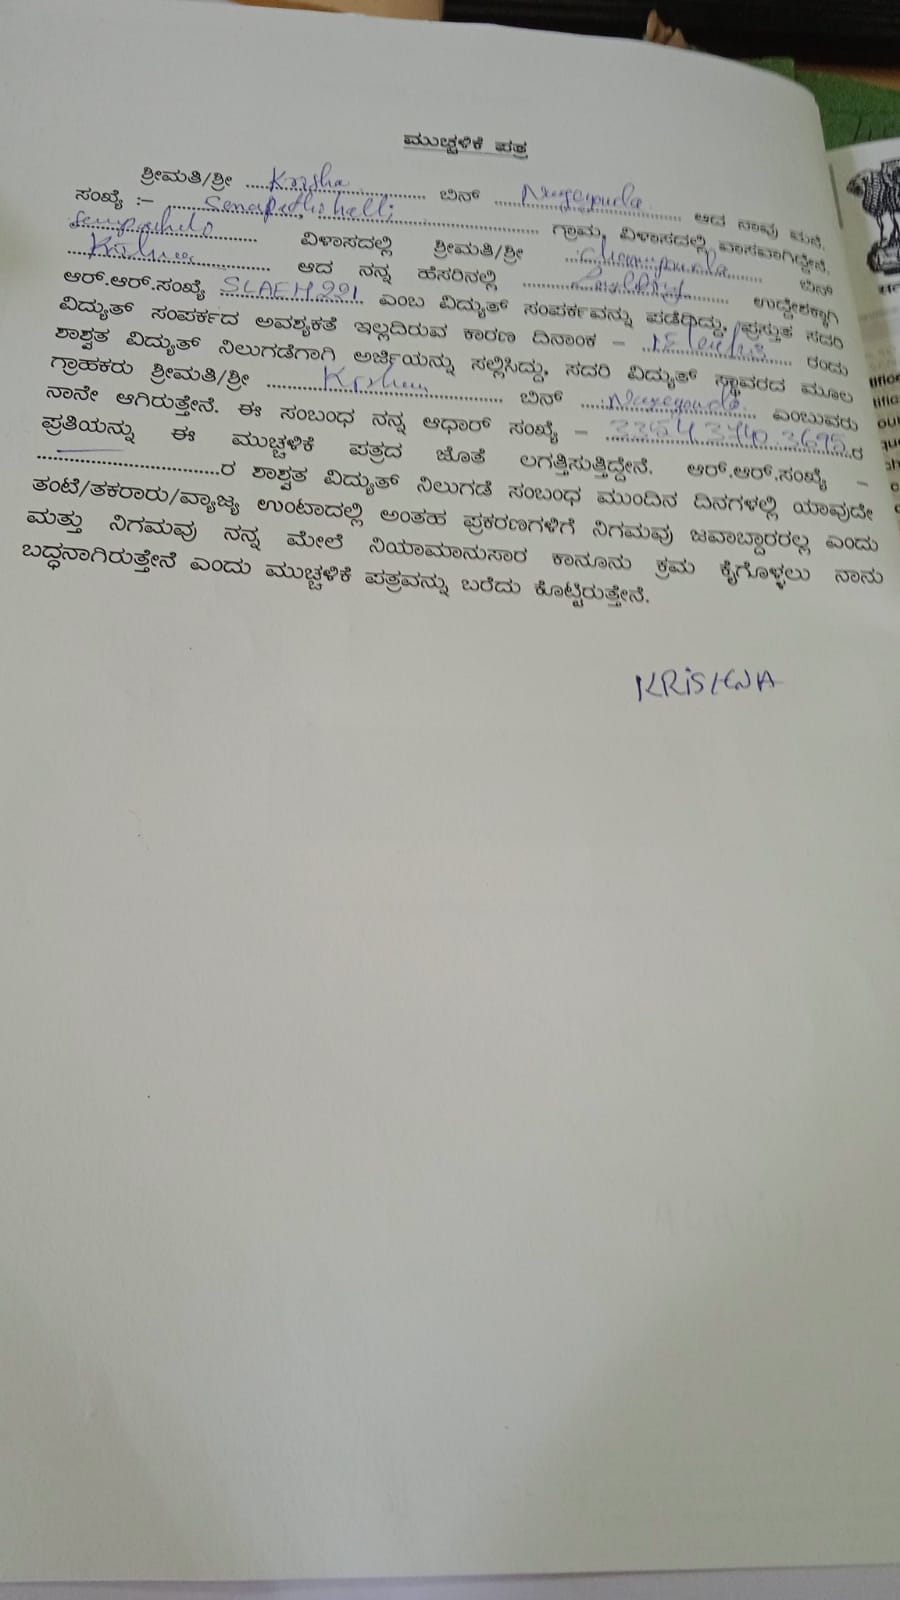 ಮುಚ್ಚಳಿಕೆ ಪತ್ರ
ಶ್ರೀಮತಿ/ಶ್ರೀ ....Krisha.... ಬಿನ್ ....Nagegouda.... ಆದ ನಾವು ಮನೆ.
ಸಂಖ್ಯೆ :- ....Senapathihalli.... ಗ್ರಾಮ, ವಿಳಾಸದಲ್ಲಿ ವಾಸವಾಗಿದ್ದೇನೆ.
ವಿಳಾಸದಲ್ಲಿ ಶ್ರೀಮತಿ/ಶ್ರೀ ಬಿನ್
ಆದ ನನ್ನ ಹೆಸರಿನಲ್ಲಿ ಉದ್ದೇಶಕ್ಕಾಗಿ
ಆರ್.ಆರ್.ಸಂಖ್ಯೆ SLAEH221 ಎಂಬ ವಿದ್ಯುತ್ ಸಂಪರ್ಕವನ್ನು ಪಡೆದಿದ್ದು, ಪ್ರಸ್ತುತ ಸದರಿ
ವಿದ್ಯುತ್ ಸಂಪರ್ಕದ ಅವಶ್ಯಕತೆ ಇಲ್ಲದಿರುವ ಕಾರಣ ದಿನಾಂಕ – ರಂದು
ಶಾಶ್ವತ ವಿದ್ಯುತ್ ನಿಲುಗಡೆಗಾಗಿ ಅರ್ಜಿಯನ್ನು ಸಲ್ಲಿಸಿದ್ದು, ಸದರಿ ವಿದ್ಯುತ್ ಸ್ಥಾವರದ ಮೂಲ
ಗ್ರಾಹಕರು ಶ್ರೀಮತಿ/ಶ್ರೀ ಬಿನ್ ....Nagegouda.... ಎಂಬುವರು
ನಾನೇ ಆಗಿರುತ್ತೇನೆ. ಈ ಸಂಬಂಧ ನನ್ನ ಆಧಾರ್ ಸಂಖ್ಯೆ – 3354 3440 3695 ರ
ಪ್ರತಿಯನ್ನು ಈ ಮುಚ್ಚಳಿಕೆ ಪತ್ರದ ಜೊತೆ ಲಗತ್ತಿಸುತ್ತಿದ್ದೇನೆ. ಆರ್.ಆರ್.ಸಂಖ್ಯೆ –
..............................ರ ಶಾಶ್ವತ ವಿದ್ಯುತ್ ನಿಲುಗಡೆ ಸಂಬಂಧ ಮುಂದಿನ ದಿನಗಳಲ್ಲಿ ಯಾವುದೇ
ತಂಟೆ/ತಕರಾರು/ವ್ಯಾಜ್ಯ ಉಂಟಾದಲ್ಲಿ ಅಂತಹ ಪ್ರಕರಣಗಳಿಗೆ ನಿಗಮವು ಜವಾಬ್ದಾರರಲ್ಲ ಎಂದು
ಮತ್ತು ನಿಗಮವು ನನ್ನ ಮೇಲೆ ನಿಯಾಮಾನುಸಾರ ಕಾನೂನು ಕ್ರಮ ಕೈಗೊಳ್ಳಲು ನಾನು
ಬದ್ಧನಾಗಿರುತ್ತೇನೆ ಎಂದು ಮುಚ್ಚಳಿಕೆ ಪತ್ರವನ್ನು ಬರೆದು ಕೊಟ್ಟಿರುತ್ತೇನೆ.
KRISHNA